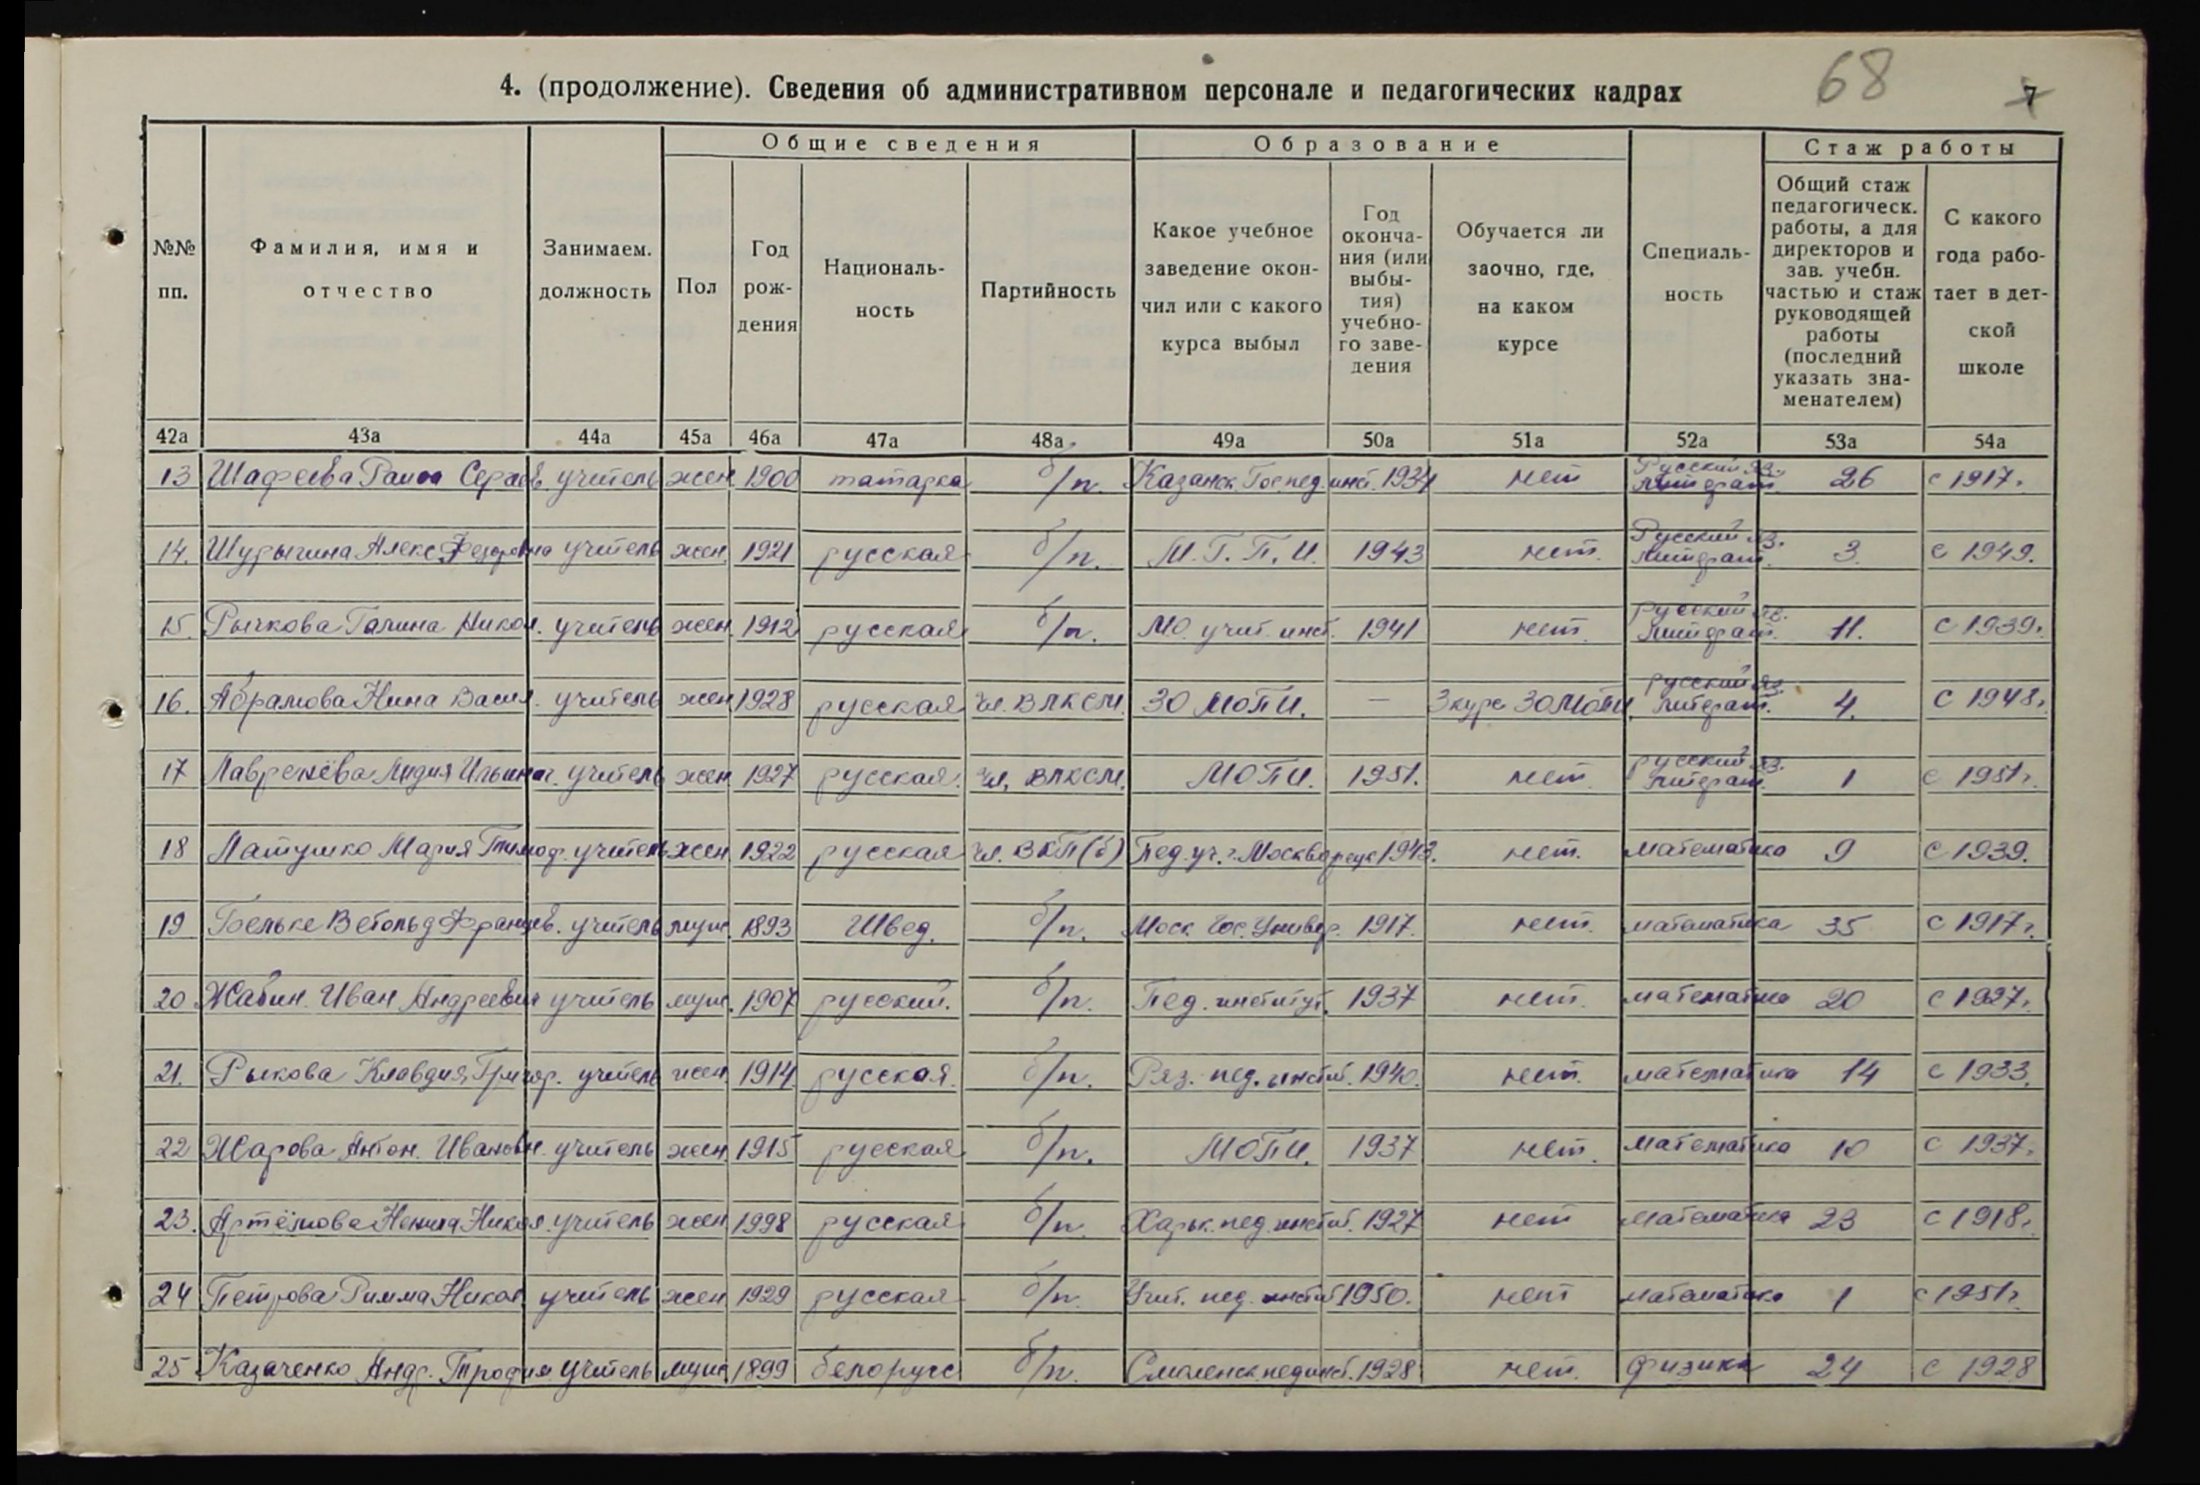 68
4. (продолжение). Сведения об административном персонале и педагогических кадрах
7
№№ пп.
Фамилия, имя и отчество
Занимаем. должность
Общие сведения
Пол
Год рож-дения
Националь-ность
Партийность
Образование
Какое учебное заведение окон-чил или с какого курса выбыл
Год оконча-ния (или выбы-тия) учебно-го заве-дения
Обучается ли заочно, где, на каком курсе
Специаль-ность
Стаж работы
Общий стаж педагогическ. работы, а для директоров и зав. учебн. частью и стаж руководящей работы (последний указать зна-менателем)
С какого года рабо-тает в дет-ской школе
42а 43а 44а 45а 46а 47а 48а 49а 50а 51а 52а 53а 54а
13 Шафеева Раиса Сергеев. учитель жен. 1900 татарка б/п. Казанск. Гос. пед. инст. 1934 нет Русский яз. литерат. 26 с 1917г.
14. Шурыгина Алекс Федоровна учитель жен. 1921 русская б/п. М.Г.П.И. 1943 нет. Русский яз. литерат. 3 с 1949.
15. Рычкова Галина Никол. учитель жен. 1912 русская б/п. МО. учит. инст. 1941 нет. русский яз. литерат. 11. с 1939г.
16. Абрамова Нина Васил. учитель жен. 1928 русская чл. ВЛКСМ. ЗО МОПИ. — 3 курс ЗОМОПИ. русский яз. литерат. 4. с 1948г.
17 Лавренёва Лидия Ильинич. учитель жен. 1927 русская. чл. ВЛКСМ. МОПИ. 1951. нет. русский яз. литерат. 1 с 1951г.
18 Латушко Мария Тимоф. учитель жен. 1922 русская чл. ВКП(б) Пед. уч. г. Москворецк 1943. нет. математика 9 с 1939.
19 Бельке Витольд Францев. учитель муж. 1893 Швед. б/п. Моск. Гос. Универ. 1917. нет. математика 35 с 1917г.
20 Жабин Иван Андреевич учитель муж. 1907 русский. б/п. Пед. институт. 1937 нет. математика 20 с 1927г.
21. Рыкова Клавдия Григор. учитель жен. 1914 русская. б/п. Ряз. пед. инстит. 1940. нет. математика 14 с 1933.
22 Жарова Антон. Ивановн. учитель жен. 1915 русская б/п. МОПИ. 1937 нет. математика 10 с 1937г.
23. Артёмова Никол. учитель жен 1998 русская б/п. Харьк. пед. инстит. 1927 нет математика 23 с 1918г.
24 Петрова Римма Никол. учитель жен 1929 русская б/п. Учит. пед. инстит 1950. нет математика 1 с 1951г.
25 Казаченко Андр. Трофим учитель муж 1899 белорусс б/п. Смоленск. пединст. 1928 нет. физика 24 с 1928